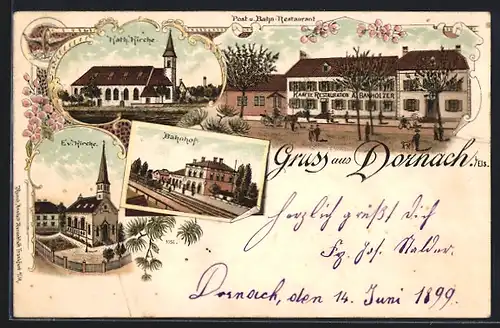 Post u. Bahn-Restaurant
Kath. Kirche
KAFFE RESTAURATION A. BANHOLZER
Ev. Kirche.
Bahnhof.
Gruss aus Dornach. i/Els.
Herzlich grüßt Dich
Jos. Stalder.
Dornach, den 14. Juni 1899.